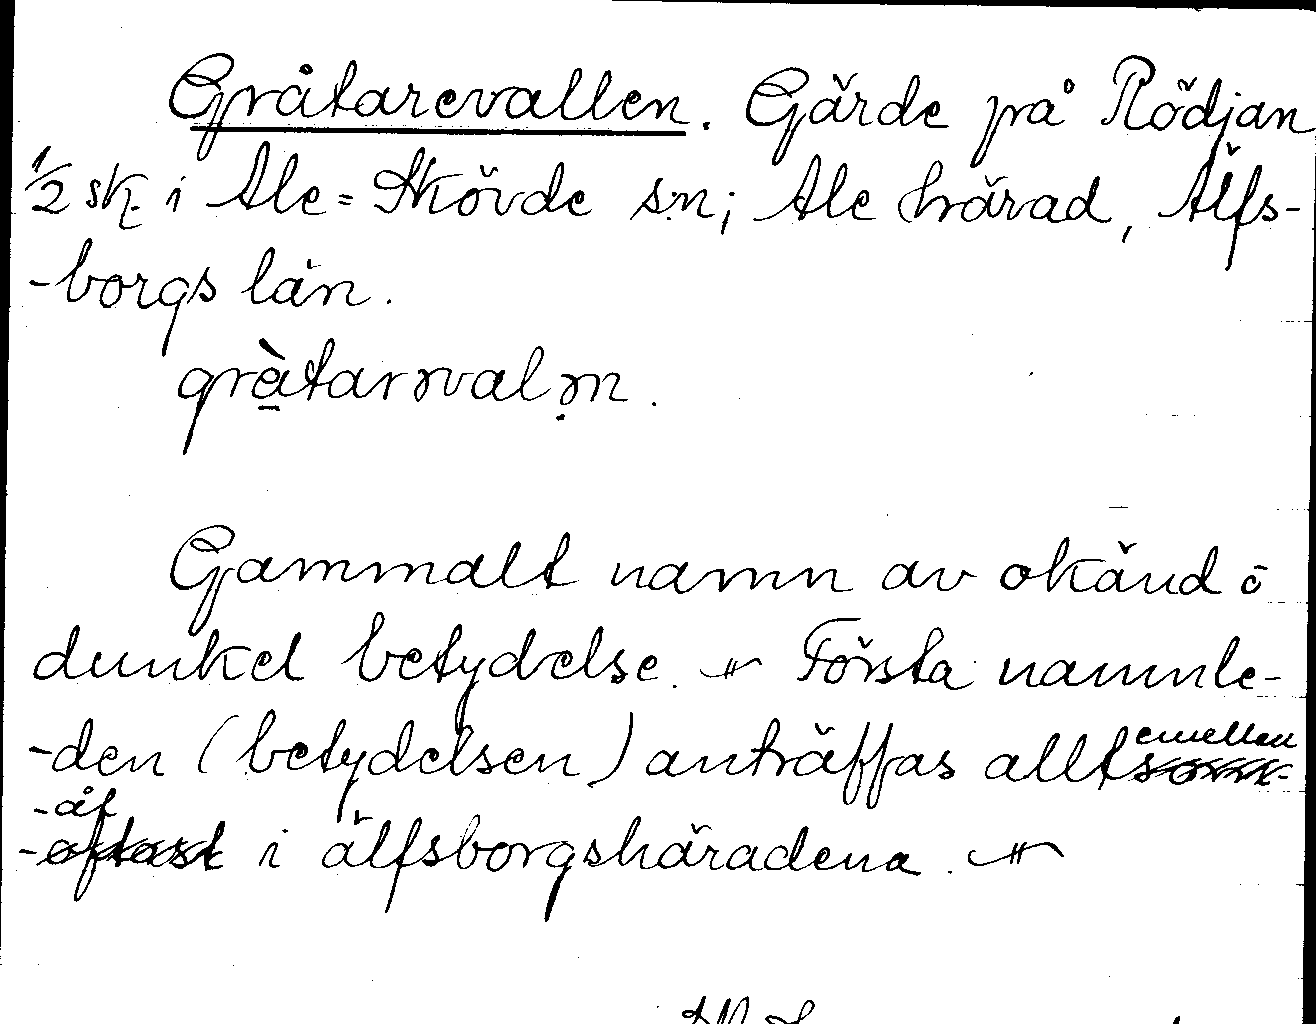 Gråtarevallen. Gärde på Rödjan
1/2 sk. i Ale=Skövde sn; Ale härad, Älfs-
-borgs län.
Gammalt namn av okänd o
dunkel betydelse. Första namnle-
-den (betydelsen) anträffas allt emellan
-åt i älfsborgshäradena.